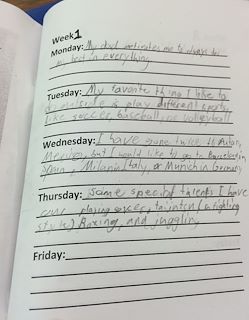 Week1
Monday: My dad motivates me to always do
my best in everything
Tuesday: My favorite thing I like to
do outside is play different sports,
like soccer, baseball, or volleyball
Wednesday: I have gone twice to
Mexico, but I would like to go to Barcelona,
Milan Italy, or Munich in Germany
Thursday: Some special talents I have
are playing soccer, (a fighting
style) Boxing, and juggling
Friday: